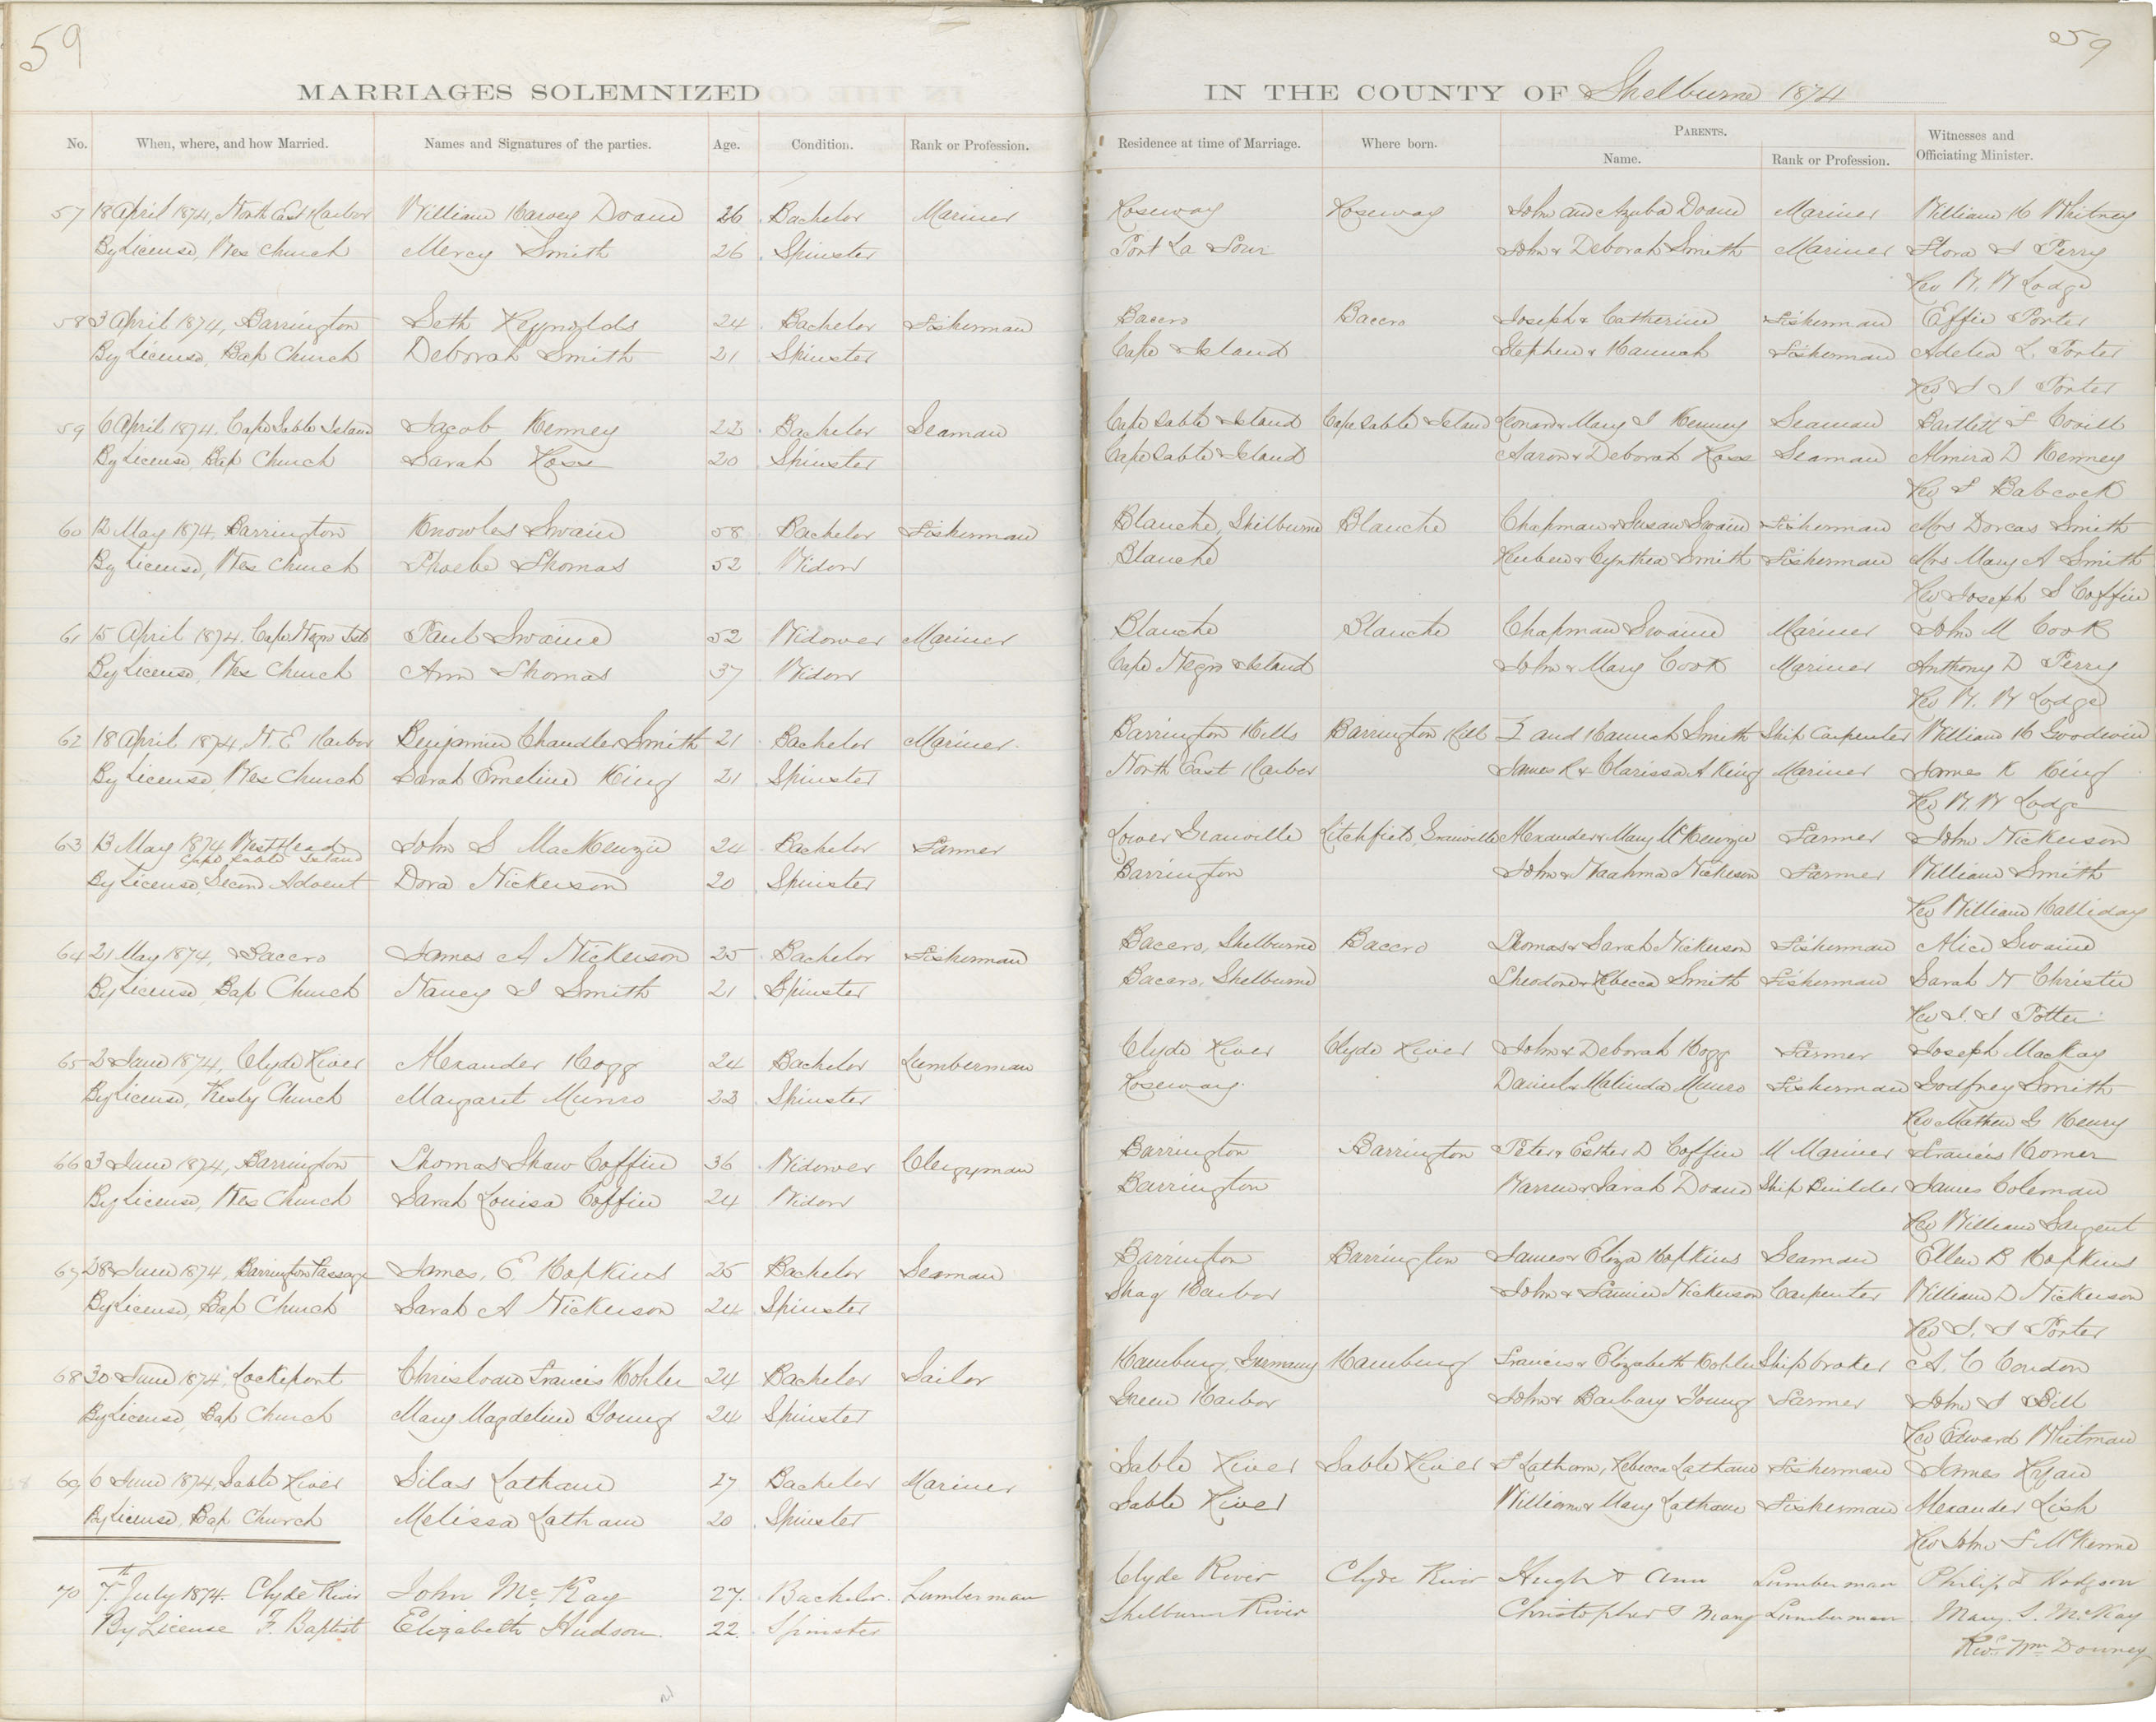 59
59
MARRIAGES SOLEMNIZED
IN THE COUNTY OF Shelburne 1874
No. When, where, and how Married. Names and Signatures of the parties. Age. Condition. Rank or Profession. Residence at time of Marriage. Where born. PARENTS. Name. Rank or Profession. Witnesses and Officiating Minister.
57 18 April 1874, North East Harbor William Harvey Doane 26 Bachelor Mariner Roseway Roseway John and Azuba Doane Mariner William H Whitney
By License, Wes Church Mercy Smith 26 Spinster Port La Tour John & Deborah Smith Mariner Flora I Perry
Rev W. W Lodge
58 3 April 1874, Barrington Seth Reynolds 24 Bachelor Fisherman Bacero Bacero Joseph & Catherine Fisherman Effie Porter
By License, Bap Church Deborah Smith 21 Spinster Cape Island Stephen & Hannah Fisherman Adelia L. Porter
Rev Porter
59 6 April 1874. Cape Sable Island Jacob Kenney 22 Bachelor Seaman Cape Sable Island Cape Sable Island Leonard & Mary I Kenney Seaman Bartlett
By License, Bap Church Sarah Ross 20 Spinster Cape Sable Island Aaron & Deborah Ross Seaman Almira D Kenney
Rev Babcock
60 12 May 1874, Barrington Knowles Swain 58 Bachelor Fisherman Blanche, Shelburne Blanche Chapman & Susan Swain Fisherman Mrs Dorcas Smith
By License, Wes Church Phoebe Thomas 52 Widow Blanche Reuben & Cynthia Smith Fisherman Mrs Mary A Smith
Rev Joseph S Coffin
61 15 April 1874. Cape Negro Isld Paul Swaine 52 Widower Mariner Blanche Blanche Chapman Swaine Mariner John M Cook
By License, Wes Church Ann Thomas 37 Widow Cape Negro Island John & Mary Cook Mariner Anthony D Perry
Rev W. W Lodge
62 18 April 1874, N. E Harbor Benjamin Chandler Smith 21 Bachelor Mariner Barrington Hills Barrington Hill and Hannah Smith Ship Carpenter William H Goodwin
By License, Wes Church Sarah Emeline King 21 Spinster North East Harbor James R & Clarissa A King Mariner James R King
Rev W W Lodge
63 13 May 1874 West Head Cape Sable Island John S MacKenzie 24 Bachelor Farmer Lower Granville Litchfield, Granville Alexander & Mary McKenzie Farmer John Nickerson
By License, Second Advent Dora Nickerson 20 Spinster Barrington John & Naahma Nickerson Farmer William Smith
Rev William Halliday
64 21 May 1874, Bacero James A Nickerson 25 Bachelor Fisherman Bacero, Shelburne Bacero Thomas & Sarah Nickerson Fisherman Alice Swaine
By License, Bap Church Nancy I Smith 21 Spinster Bacero, Shelburne Theodore & Rebecca Smith Fisherman Sarah N Christie
Rev
65 2 June 1874, Clyde River Alexander Hogg 24 Bachelor Lumberman Clyde River Clyde River John & Deborah Hogg Farmer Joseph MacKay
By License, Presby Church Margaret Munro 23 Spinster Roseway Daniel & Malinda Munro Fisherman Godfrey Smith
Rev Mathew G Henry
66 3 June 1874, Barrington Thomas Shaw Coffin 36 Widower Clergyman Barrington Barrington Peter & Esther D Coffin M Mariner Francis Homer
By License, Wes Church Sarah Louisa Coffin 24 Widow Barrington Warren & Sarah Doane Ship Builder James Coleman
Rev William Sargent
67 28 June 1874, Barrington Passage James, E. Hopkins 25 Bachelor Seaman Barrington Barrington James & Eliza Hopkins Seaman Ellen B Hopkins
By License, Bap Church Sarah A Nickerson 24 Spinster Shag Harbor John & Nickerson Carpenter William D Nickerson
Rev Porter
68 30 June 1874, Lockeport Francis Kohler 24 Bachelor Sailor Hamburg, Germany Hamburg Francis & Elizabeth Kohler Ship broker A. C Condon
By License, Bap Church Mary Magdeline Young 24 Spinster Green Harbor John & Barbary Young Farmer John Bill
Rev Edward Whitman
69 6 June 1874, Sable River Silas Latham 27 Bachelor Mariner Sable River Sable River Latham, Rebecca Latham Fisherman James
By License, Bap Church Melissa Latham 20 Spinster Sable River William & Mary Latham Fisherman Alexander Lish
Rev John
70 7th July 1874. Clyde River John McKay 27. Bachelor. Lumberman Clyde River Clyde River Hugh & Ann Lumberman Philip Hodgson
By License F. Baptist Elizabeth Hudson. 22. Spinster Shelburne River Christopher & Mary Lumberman Mary S. McKay
Revd Wm Downey